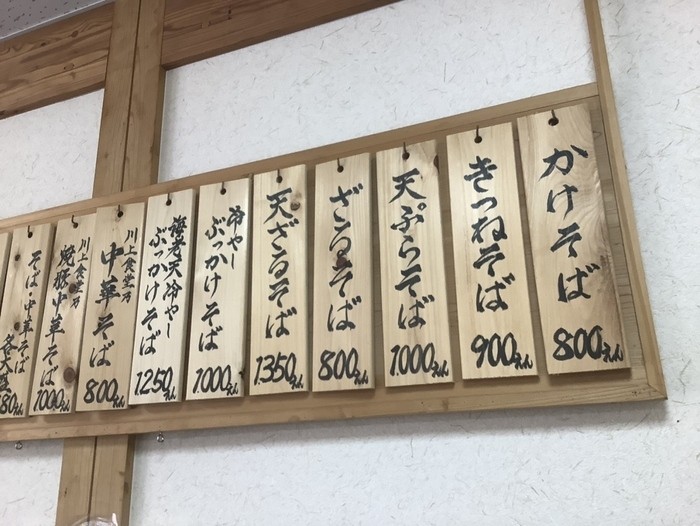 かけそば
800えん
きつねそば
900えん
天ぷらそば
1000えん
ざるそば
800えん
天ざるそば
1350えん
冷やし
ぶっかけそば
1000えん
海老天冷やし
ぶっかけそば
1250えん
川上食堂乃
中華そば
800えん
川上食堂乃
焼豚中華そば
1000えん
そば・中華そば
各大盛